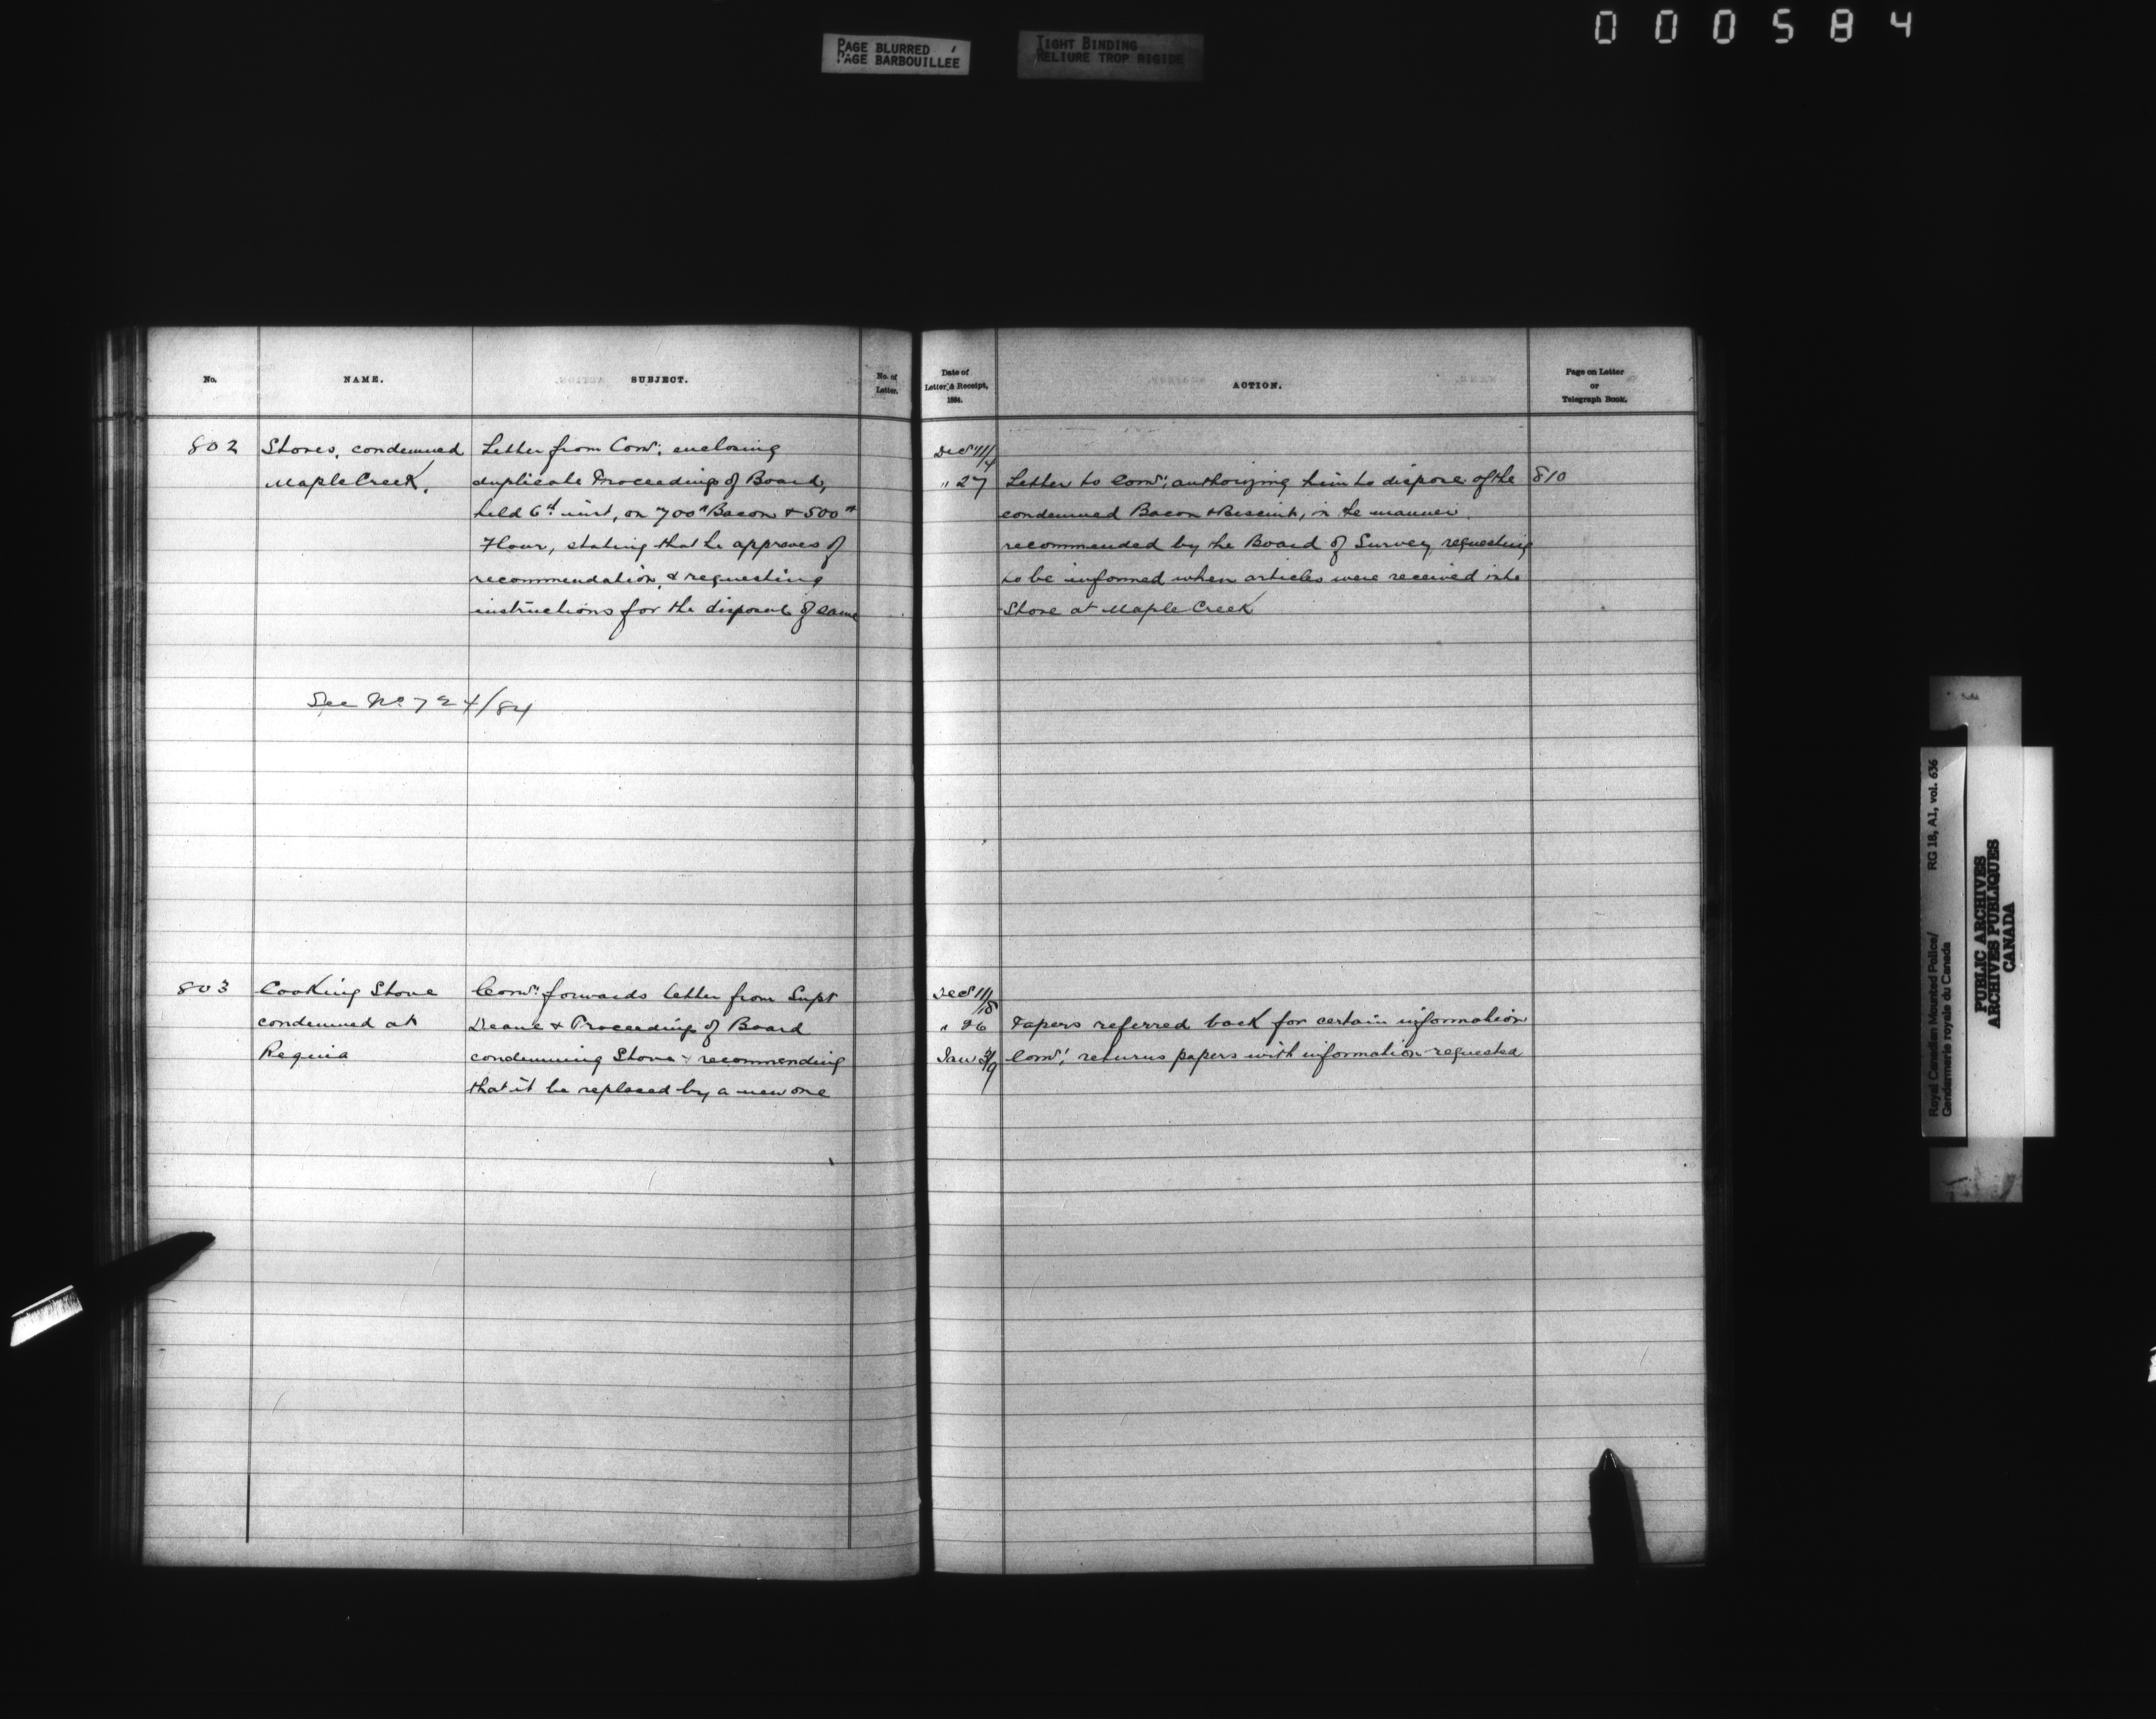 000584
PAGE BLURRED
PAGE BARBOUILLÉE
TIGHT BINDING
RELIURE TROP RIGIDE
No.
NAME.
SUBJECT.
No. of
Letter.
802
Stores, condemned
Maple Creek.
Letter from Comr. enclosing
duplicate Proceedings of Board,
held 6th inst, on 700# Bacon & 500#
Flour, stating that he approves of
recommendation, & requesting
instructions for the disposal of same
See No 724/84
803
Cooking Stove
condemned at
Regina
Comr. forwards letter from Supt
Deane & Proceedings of Board
condemning Stove & recommending
that it be replaced by a new one
Date of
Letter, & Receipt,
1884.
ACTION.
Page on Letter
or
Telegraph Book.
Decr 11/
" 27 Letter to Comr. authorizing him to dispose of the 810
condemned Bacon & Biscuit, in the manner
recommended by the Board of Survey, requesting
to be informed when articles were received into
Store at Maple Creek
Decr 11/18
" 26 Papers referred back for certain information
Jan 3/9 Comr. returns papers with information requested
Royal Canadian Mounted Police/
Gendarmerie royale du Canada
RG 18, A1, vol. 636
PUBLIC ARCHIVES
ARCHIVES PUBLIQUES
CANADA